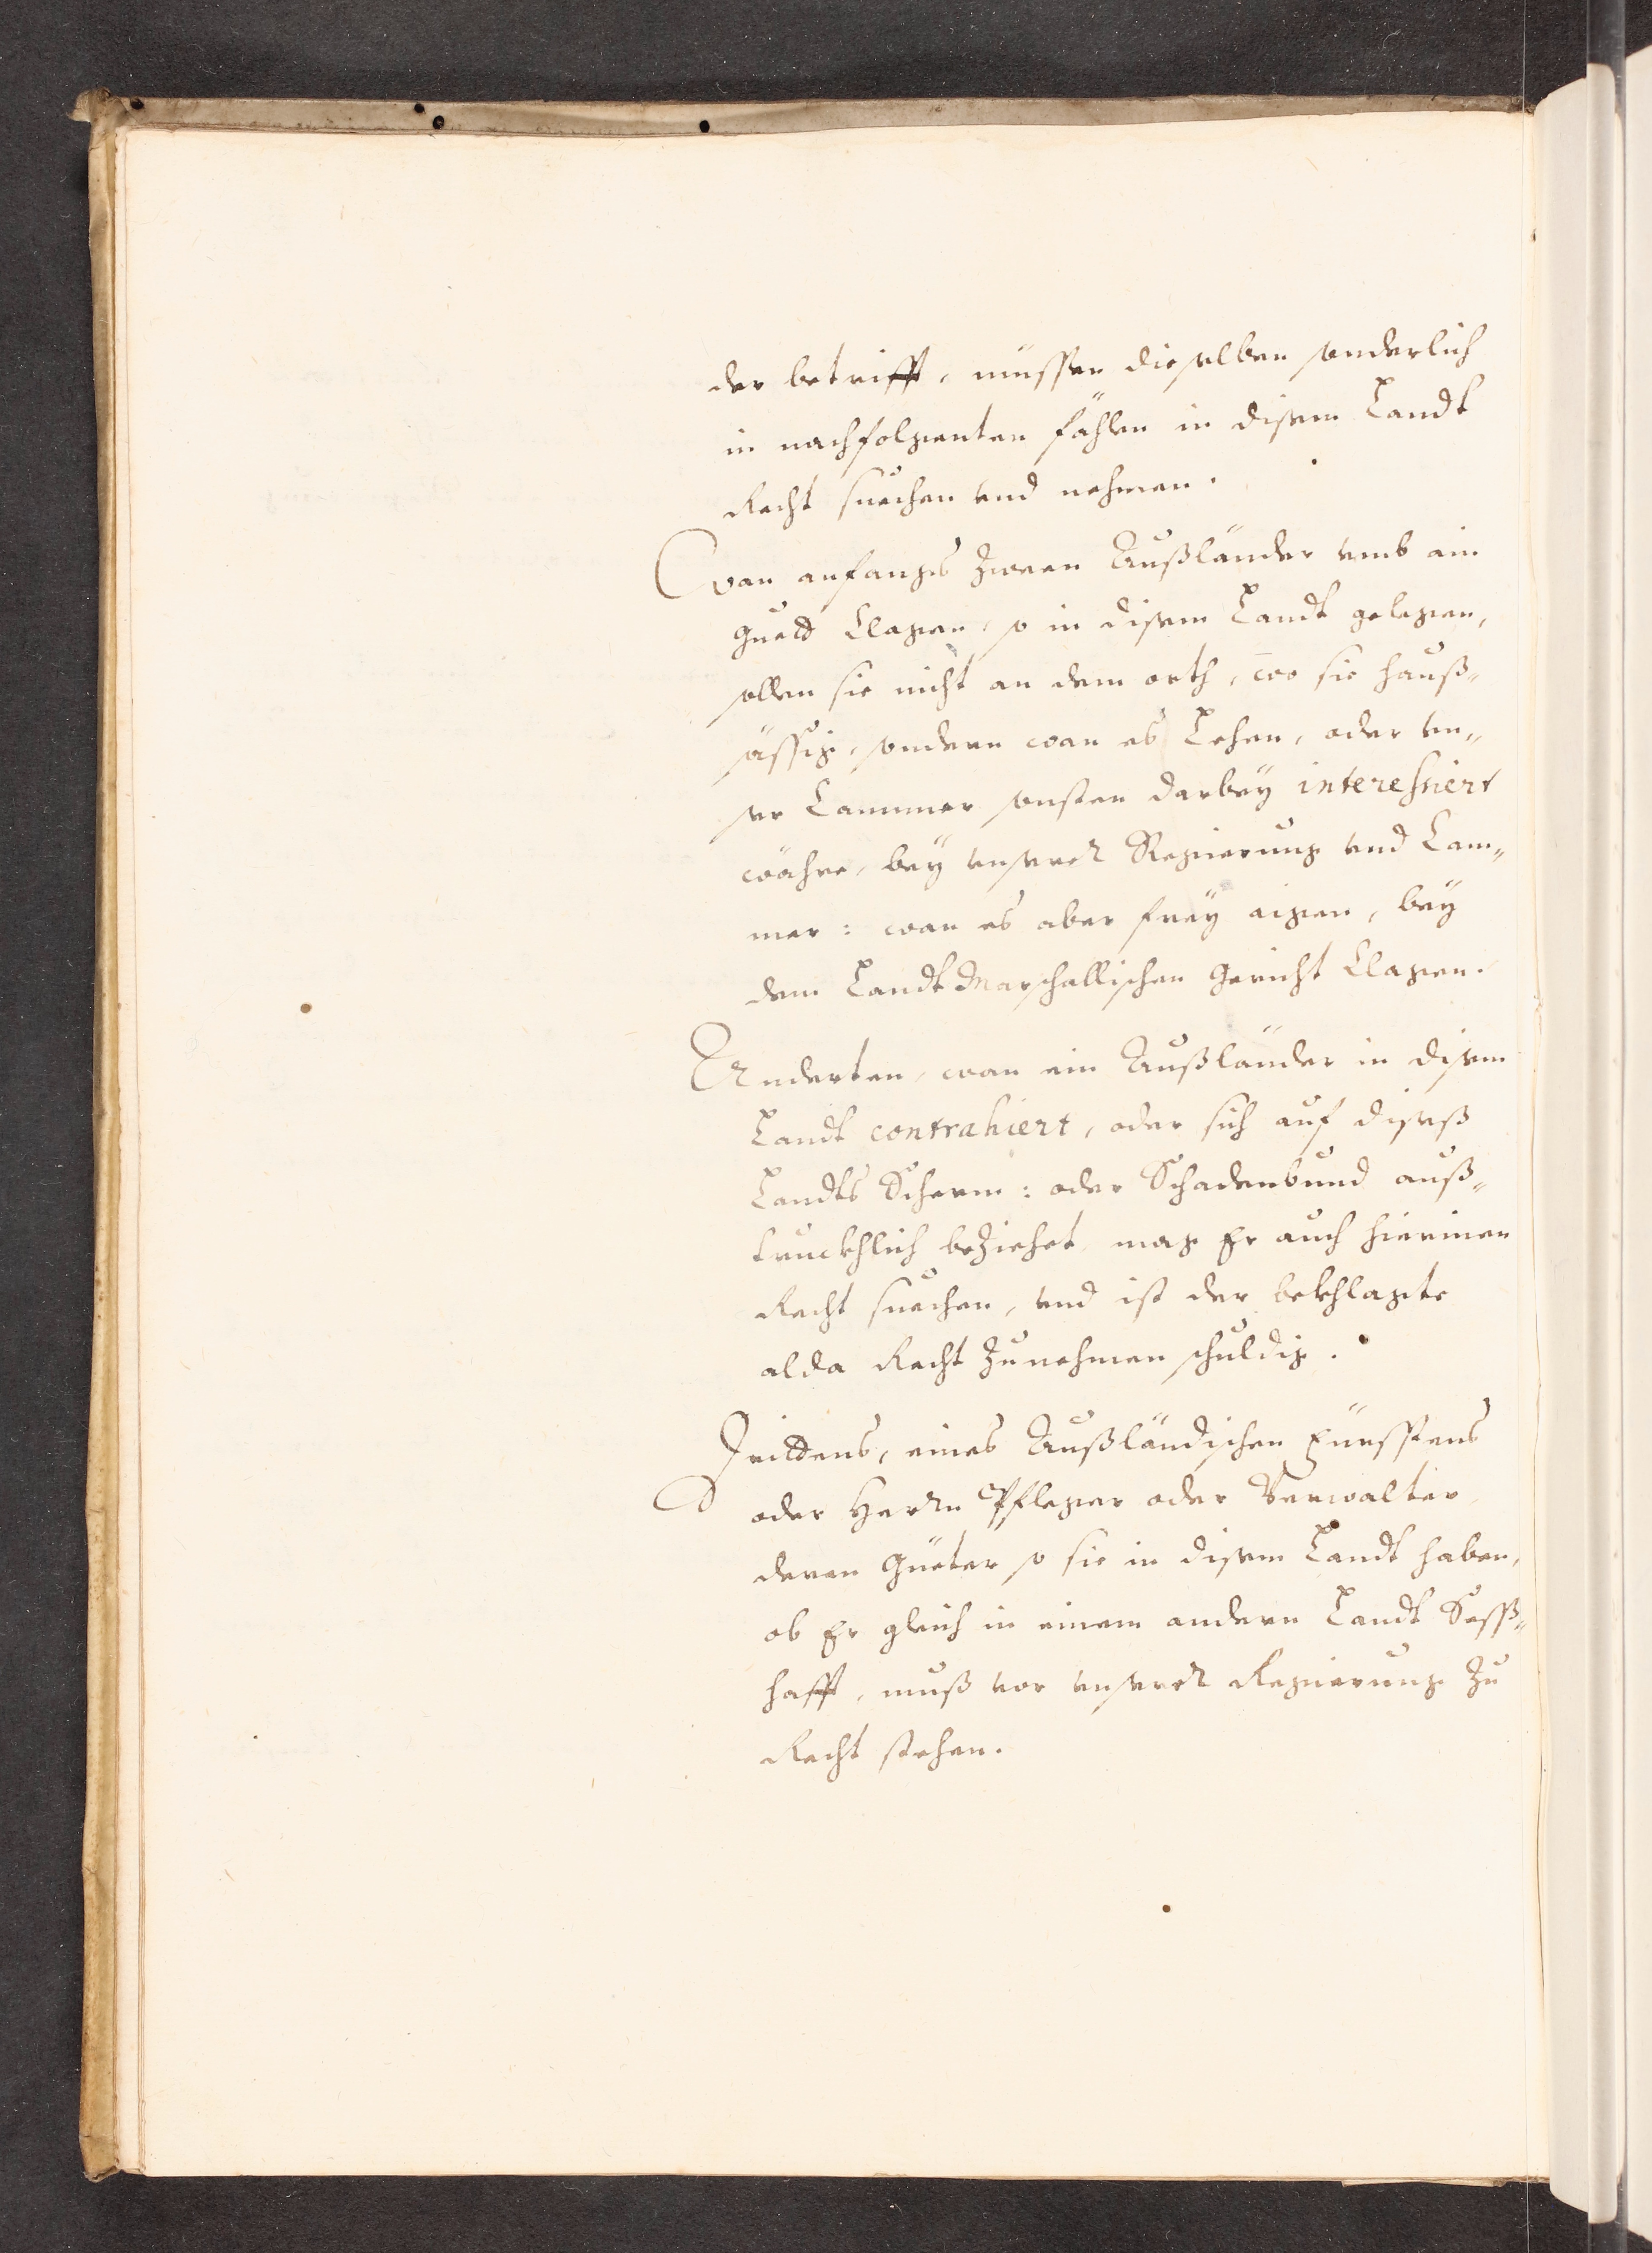 der betrifft, müssen dieselben sonderlich
in nachfolgenten fählen in disem Landt
Recht suechen vnd nehmen.
Wan anfangs zween Außländer vmb ein
guett Clagen, so in disem Landt gelegen,
sollen sie nicht an dem orth, wo sie hauß„
sässig, sondern wan es Lehen, oder vn„
ser Cammer sonsten darbeÿ interessiert
währe, beÿ vnserer Regierung vnd Cam„
mer: wan es aber freÿ aigen, beÿ
dem Landt Marschallischen gericht Clagen.
Anderten, wan ein Außländer in disem
Landt contrahiert, oder sich auf diseß
Landts Scherm: oder Schadenbund auß„
truckhlich beziehet, mag Er auch hierinen
Recht suechen, vnd ist der bekhlagte
alda Recht zunehmen schuldig.
Drittens, eines Außländischen Fürsstens
oder Herrn Pfleger oder Verwalter,
deren güeter so sie in disem Landt haben,
ob Er gleich in einem andern Landt Seß„
hafft, muß vor vnserer Regierung zu
Recht stehen.